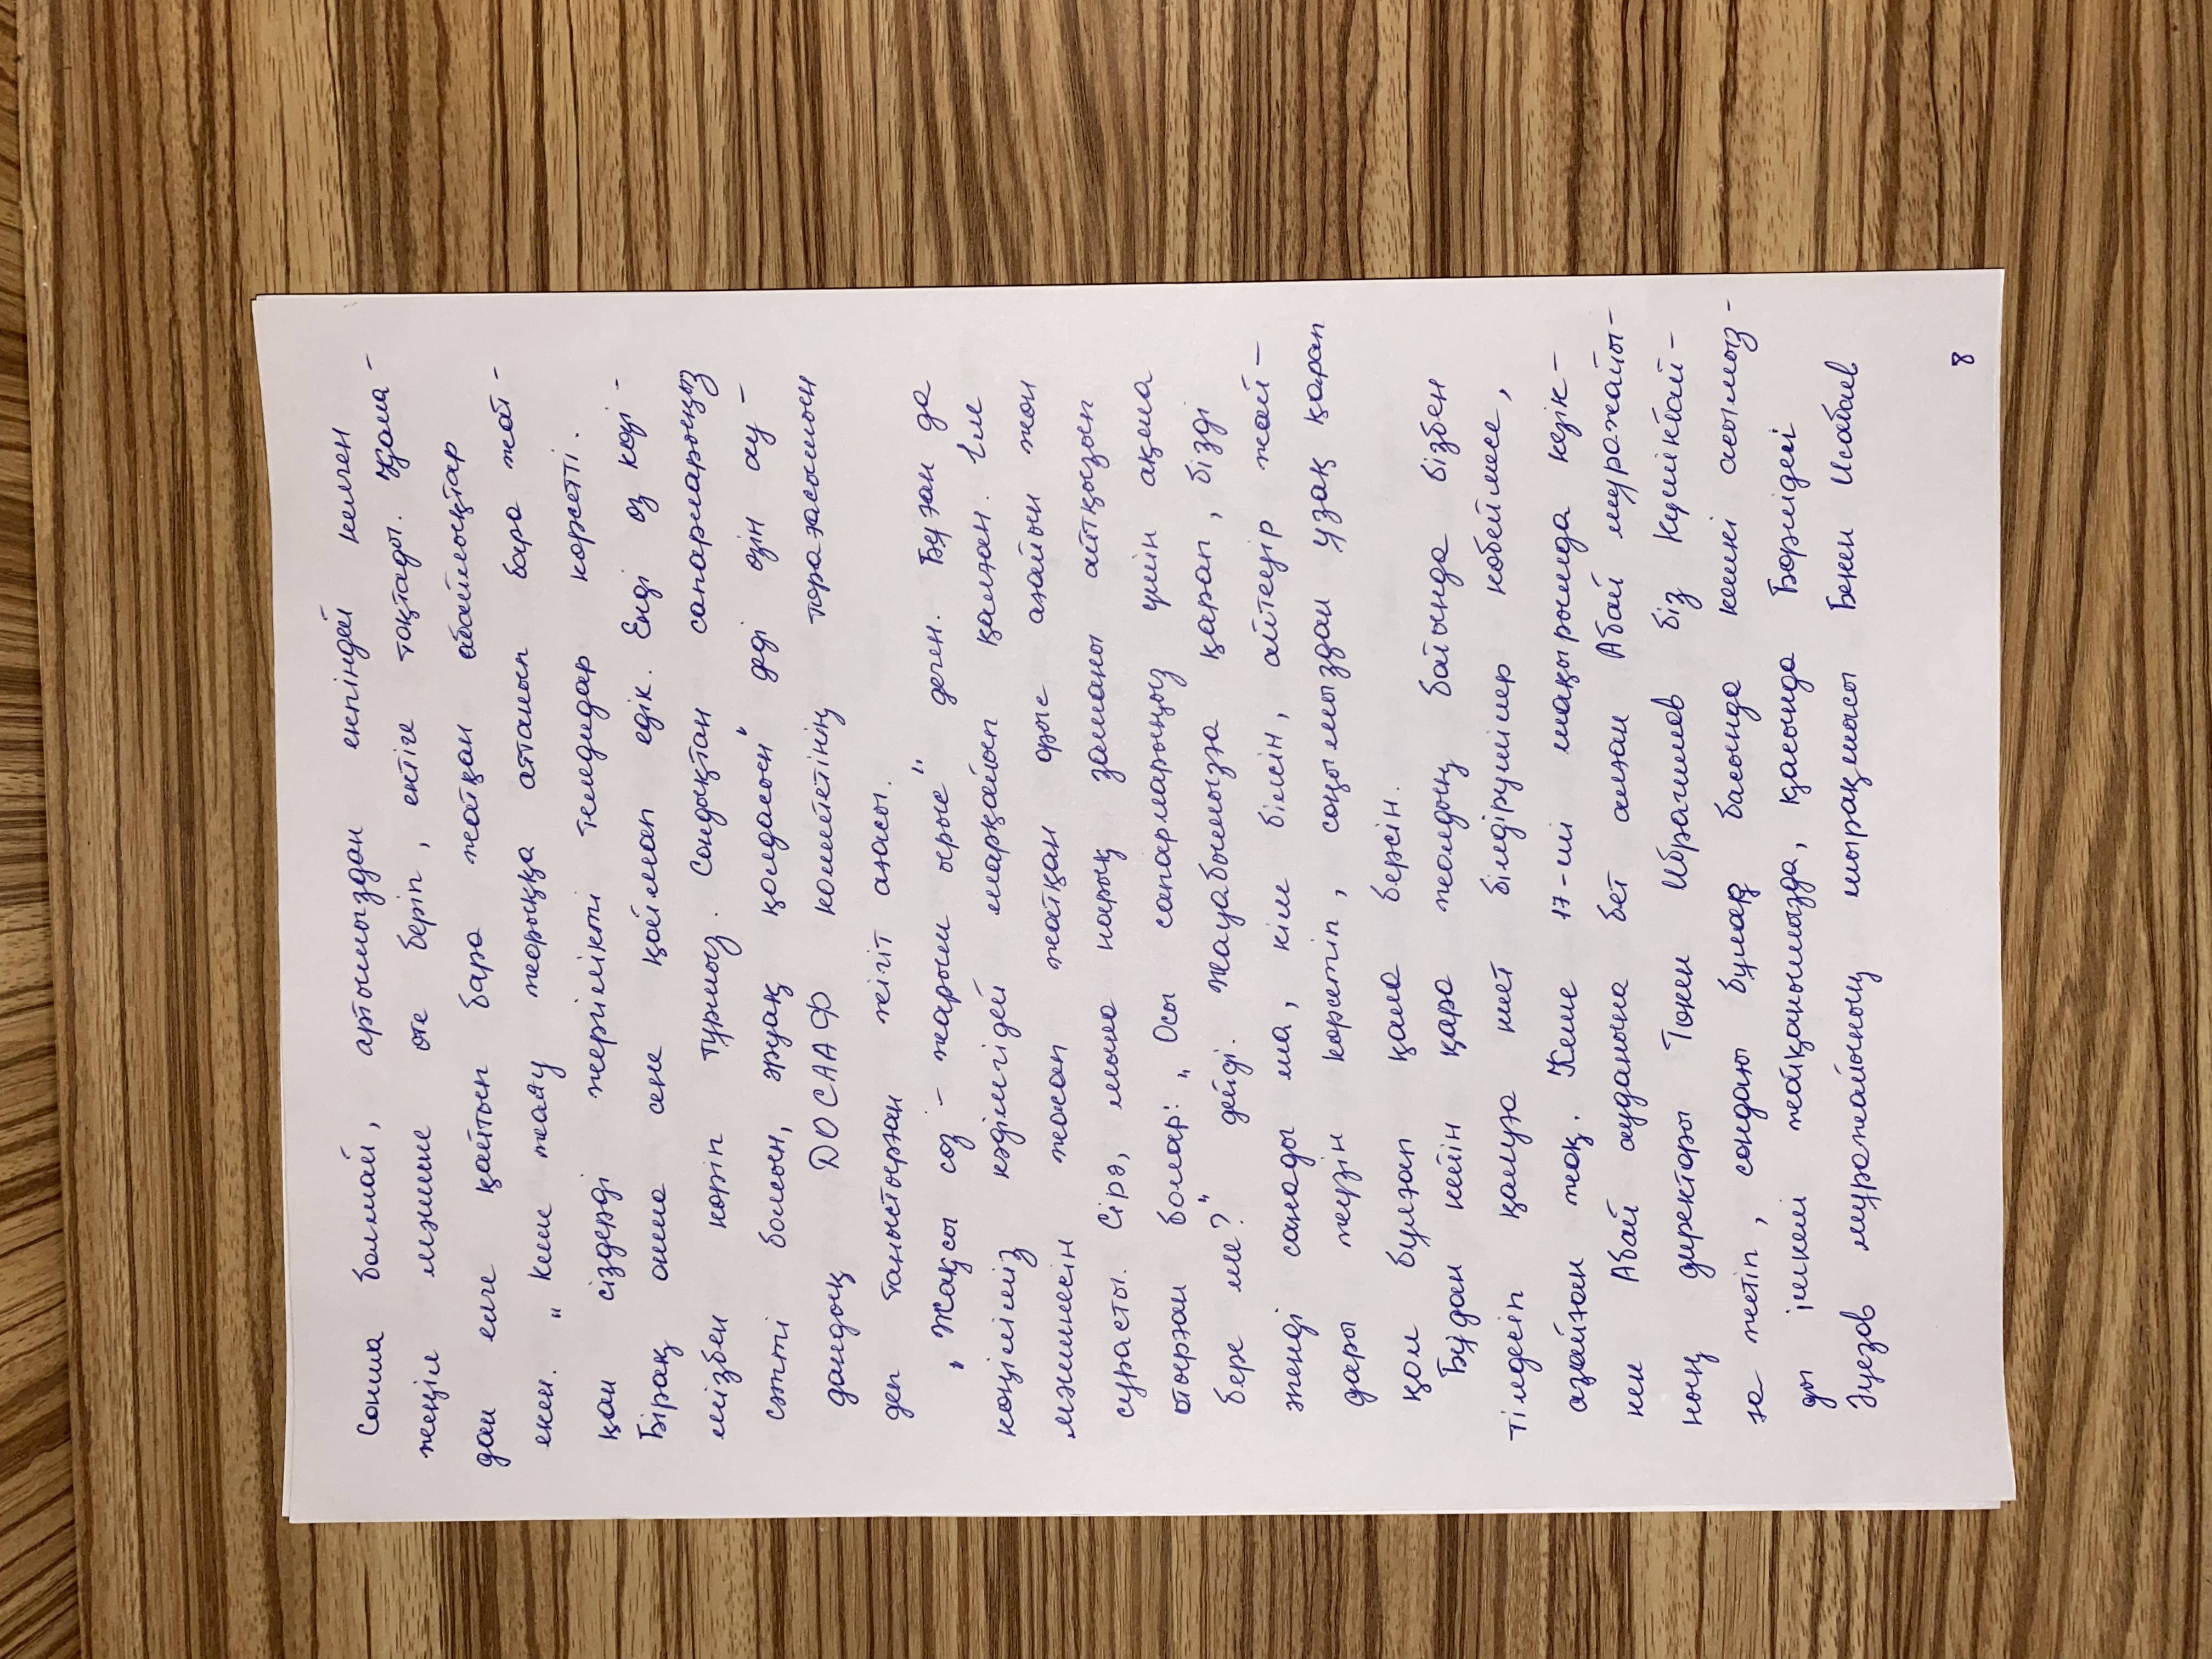 Сонша болмай, артымыздан екпіндей келген
жеңіл мәшине өте беріп, ентіге тоқтады. Қала-
дан елге қайтып бара жатқан абайлықтар
екен. „Кеше жаяу жорыққа аттанып бара жат-
қан сіздерді жергілікті теледидар көрсетті.
Бірақ онша сене қоймап едік. Енді өз көзі-
мізбен көріп тұрмыз. Сондықтан сапарларыңыз
сәтті болсын, әруақ қолдасын" деді өзін ау-
дандық ДОСААФ комитетінің төрағасымын
деп таныстырған жігіт ағасы.
„Жақсы сөз - жарым ырыс" деген. Бұған да
көңіліміз кәдімгідей марқайып қалған. Ілм
мәшинесін жасап жатқан орыс ағайын жөн
сұрасты. Сірә, мына нарық заманы айтқызып
отырған болар: „Осы сапарларыңыз үшін ақша
бере ме?" дейді. Жауабымызға қарап, бізді
женді санады ма, кім білсін, әйтеуір жай-
дары жүзін көрсетіп, соңымыздан ұзақ қарап
қол бұлғап қала берсін.
Бұдан кейін қара жолдың бойында бізбен
тілдесіп қалуға ниет білдірушілер көбеймесе,
азайған жоқ. Кеше 17-ші шақырымда кезік-
кен Абай ауданына бет алған Абай мұражайы-
ның директоры Төкен Ибрагимов біз Күшікбай-
ға жетіп, сондағы бұлақ басында кешкі асымыз-
ды ішкелі жатқанымызда, қасында Бөрлідегі
Әуезов мұражайының шырақшысы Бекен Исабаев
8